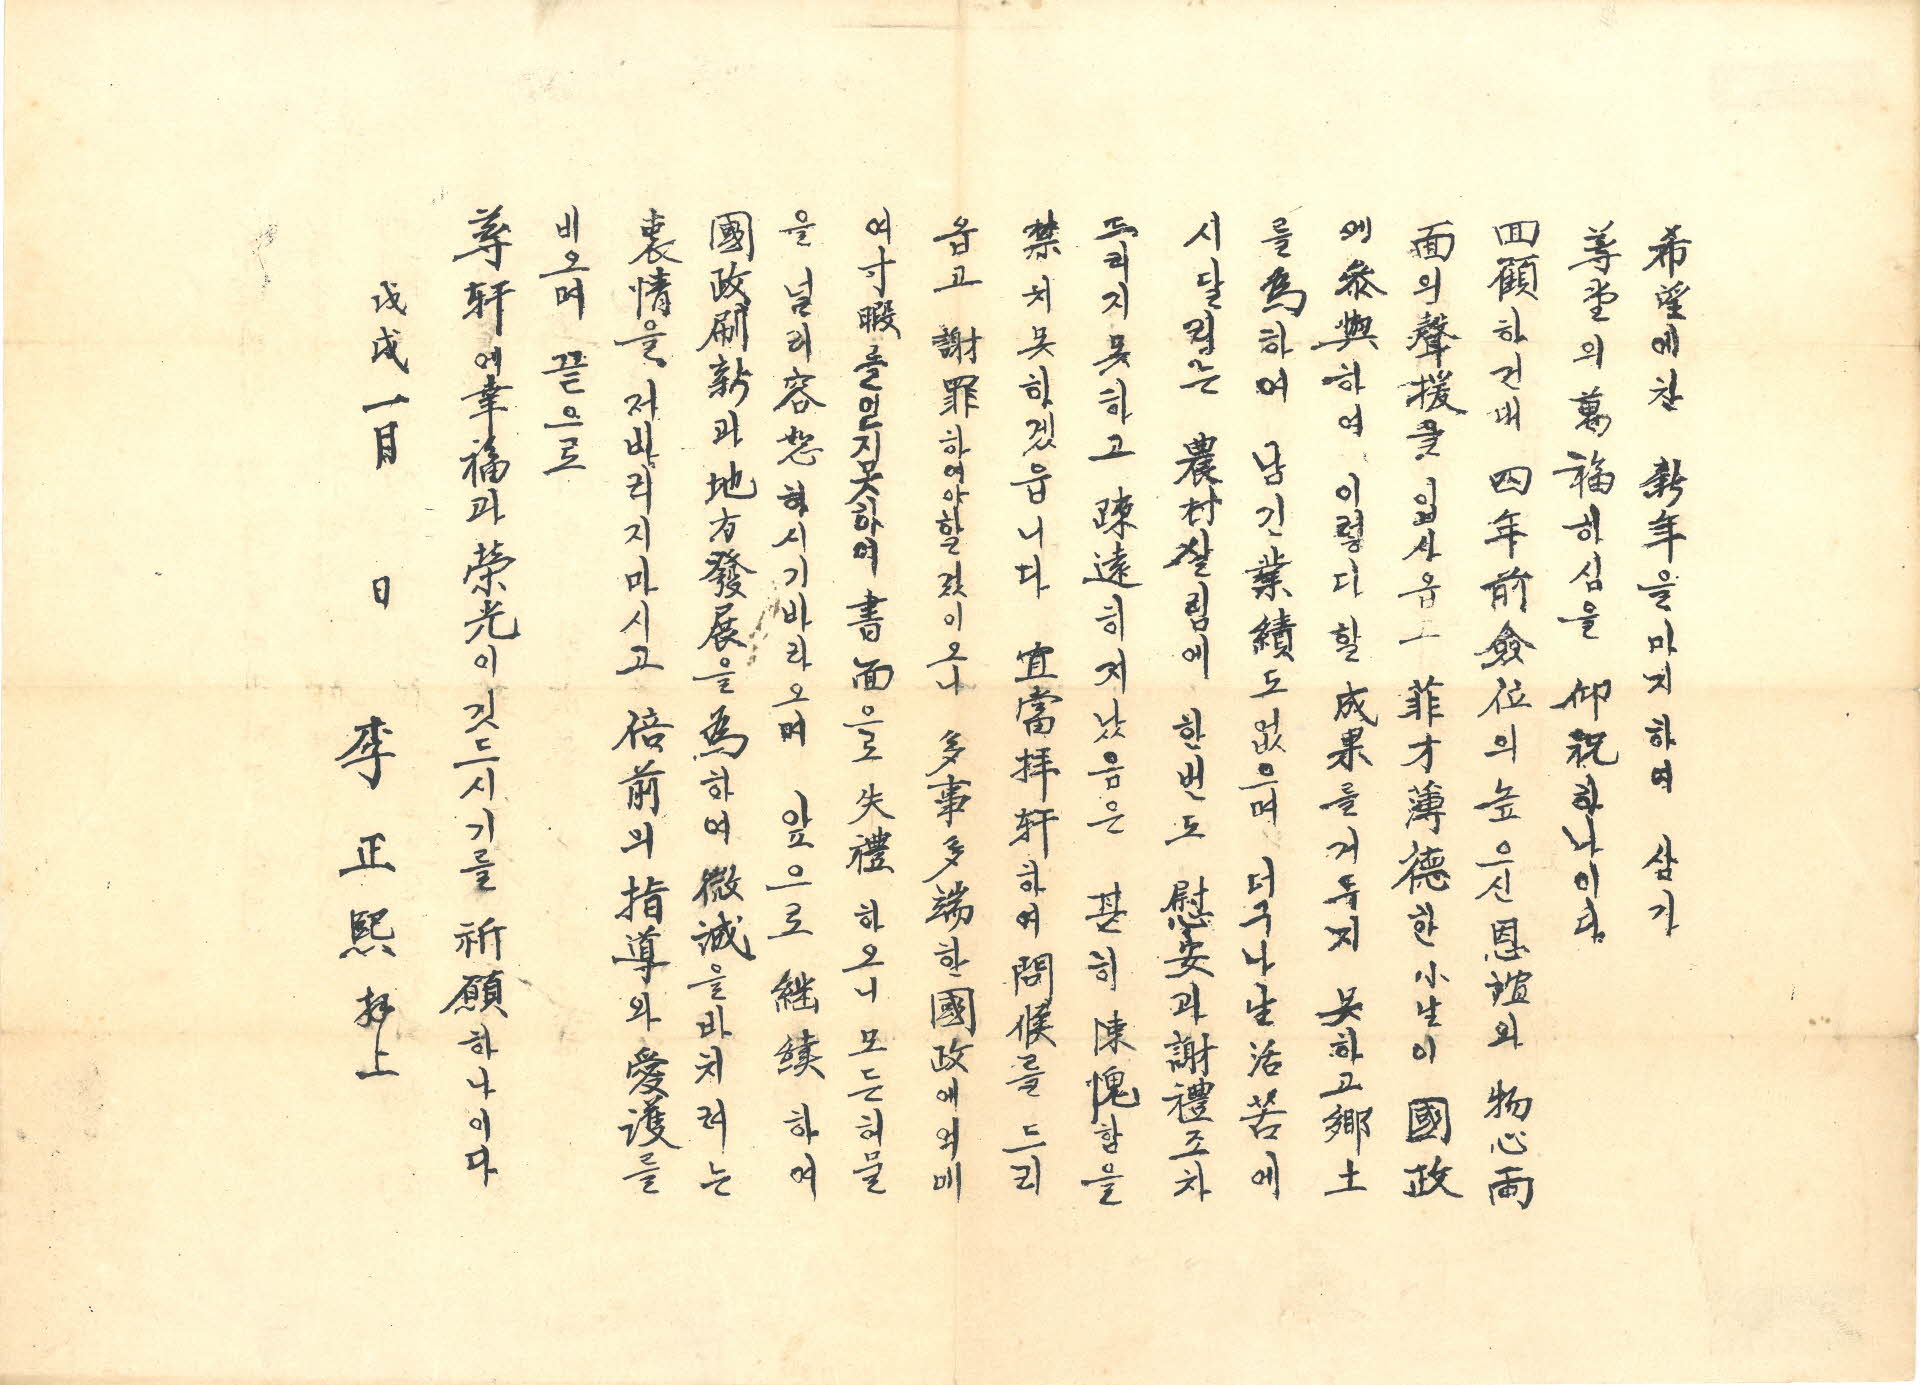 希望에찬 新年을마지하여 삼가
尊堂의 萬福하심을 仰祝하나이다
回顧하건대 四年前 僉位의 높으신 恩誼와 物心両
面의 聲援을 입사옵고 菲才薄德한 小生이 國政
에 參與하여 이렇다 할 成果를 거두지 못하고 鄕土
를 爲하여 남긴 業績도 없으며 더구나 날 活苦에
시달림은 農村살림에 한번도 慰安과 謝禮조차
드리지못하고 踈遠히 저났음은 甚히 陳愧함을
禁치못하겠읍니다 宜當拝軒하여 問候를 드리
옵고 謝罪하여야할것이오나 多事多端한 國政에 억매
여 寸暇를 얻지못하여 書面을로 失禮 하오니 모든허물
을 널리 容恕하시기바라오며 앞으로 継続 하여
國政刷新과 地方發展을 爲하여 微誠을바치려는
衷情을 저바리지마시고 倍前의 指導와 愛護를
비오며 끝으로
尊軒에 幸福과 榮光이 깃드시기를 祈願하나이다
戊戌 一月 日 李正熙 拜上